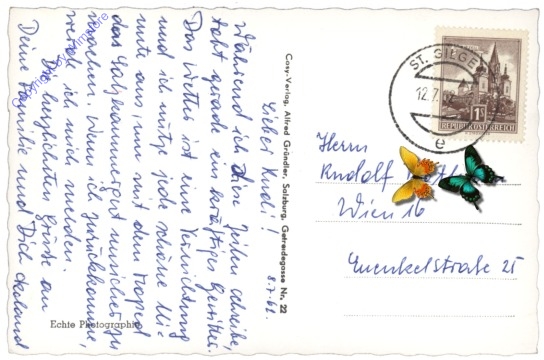 Lieber Rudi! 8.7.62.
Während ich diese Zeilen schreibe,
tobt gerade ein kräftiges Gewitter.
Das Wetter ist eine Vernichtung
und ich nütze jede schöne Mi-
nute aus, um mit dem Moped
das Salzkammergut unsicher zu
machen. Wenn ich zurückkomme,
werde ich mich melden.
Die herzlichsten Grüße an
Deine Familie und Dich
Cosy-Verlag, Alfred Gründler, Salzburg, Getreidegasse Nr. 22
Echte Photographie
ST. GILGEN
12.7.
e
1S
REPUBLIK ÖSTERREICH
Herrn
Rudolf
Wien 16
25